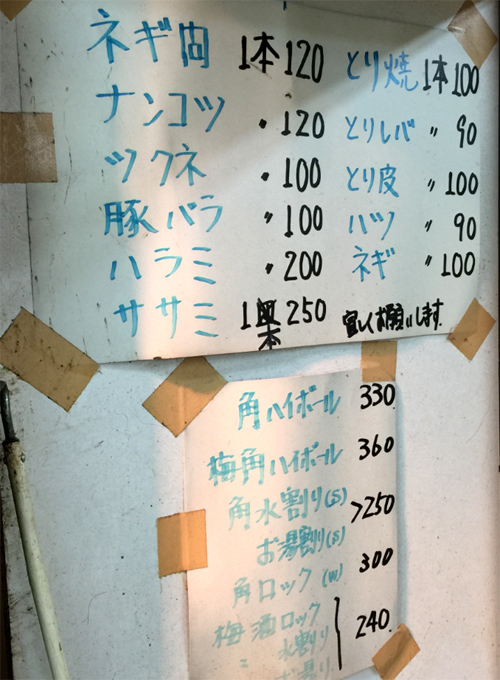 ネギ肉 1本 120
ナンコツ 〃 120
ツクネ 〃 100
豚バラ 〃 100
ハラミ 〃 200
ササミ 1本 250
とり焼 1本 100
とりレバ 〃 90
とり皮 〃 100
ハツ 〃 90
ネギ 〃 100
宜しくお願いします
角ハイボール 330
梅角ハイボール 360
角水割り(S) >250
お湯割り(S)
角ロック (W) 300
梅酒ロック
〃 水割り } 240
お湯り